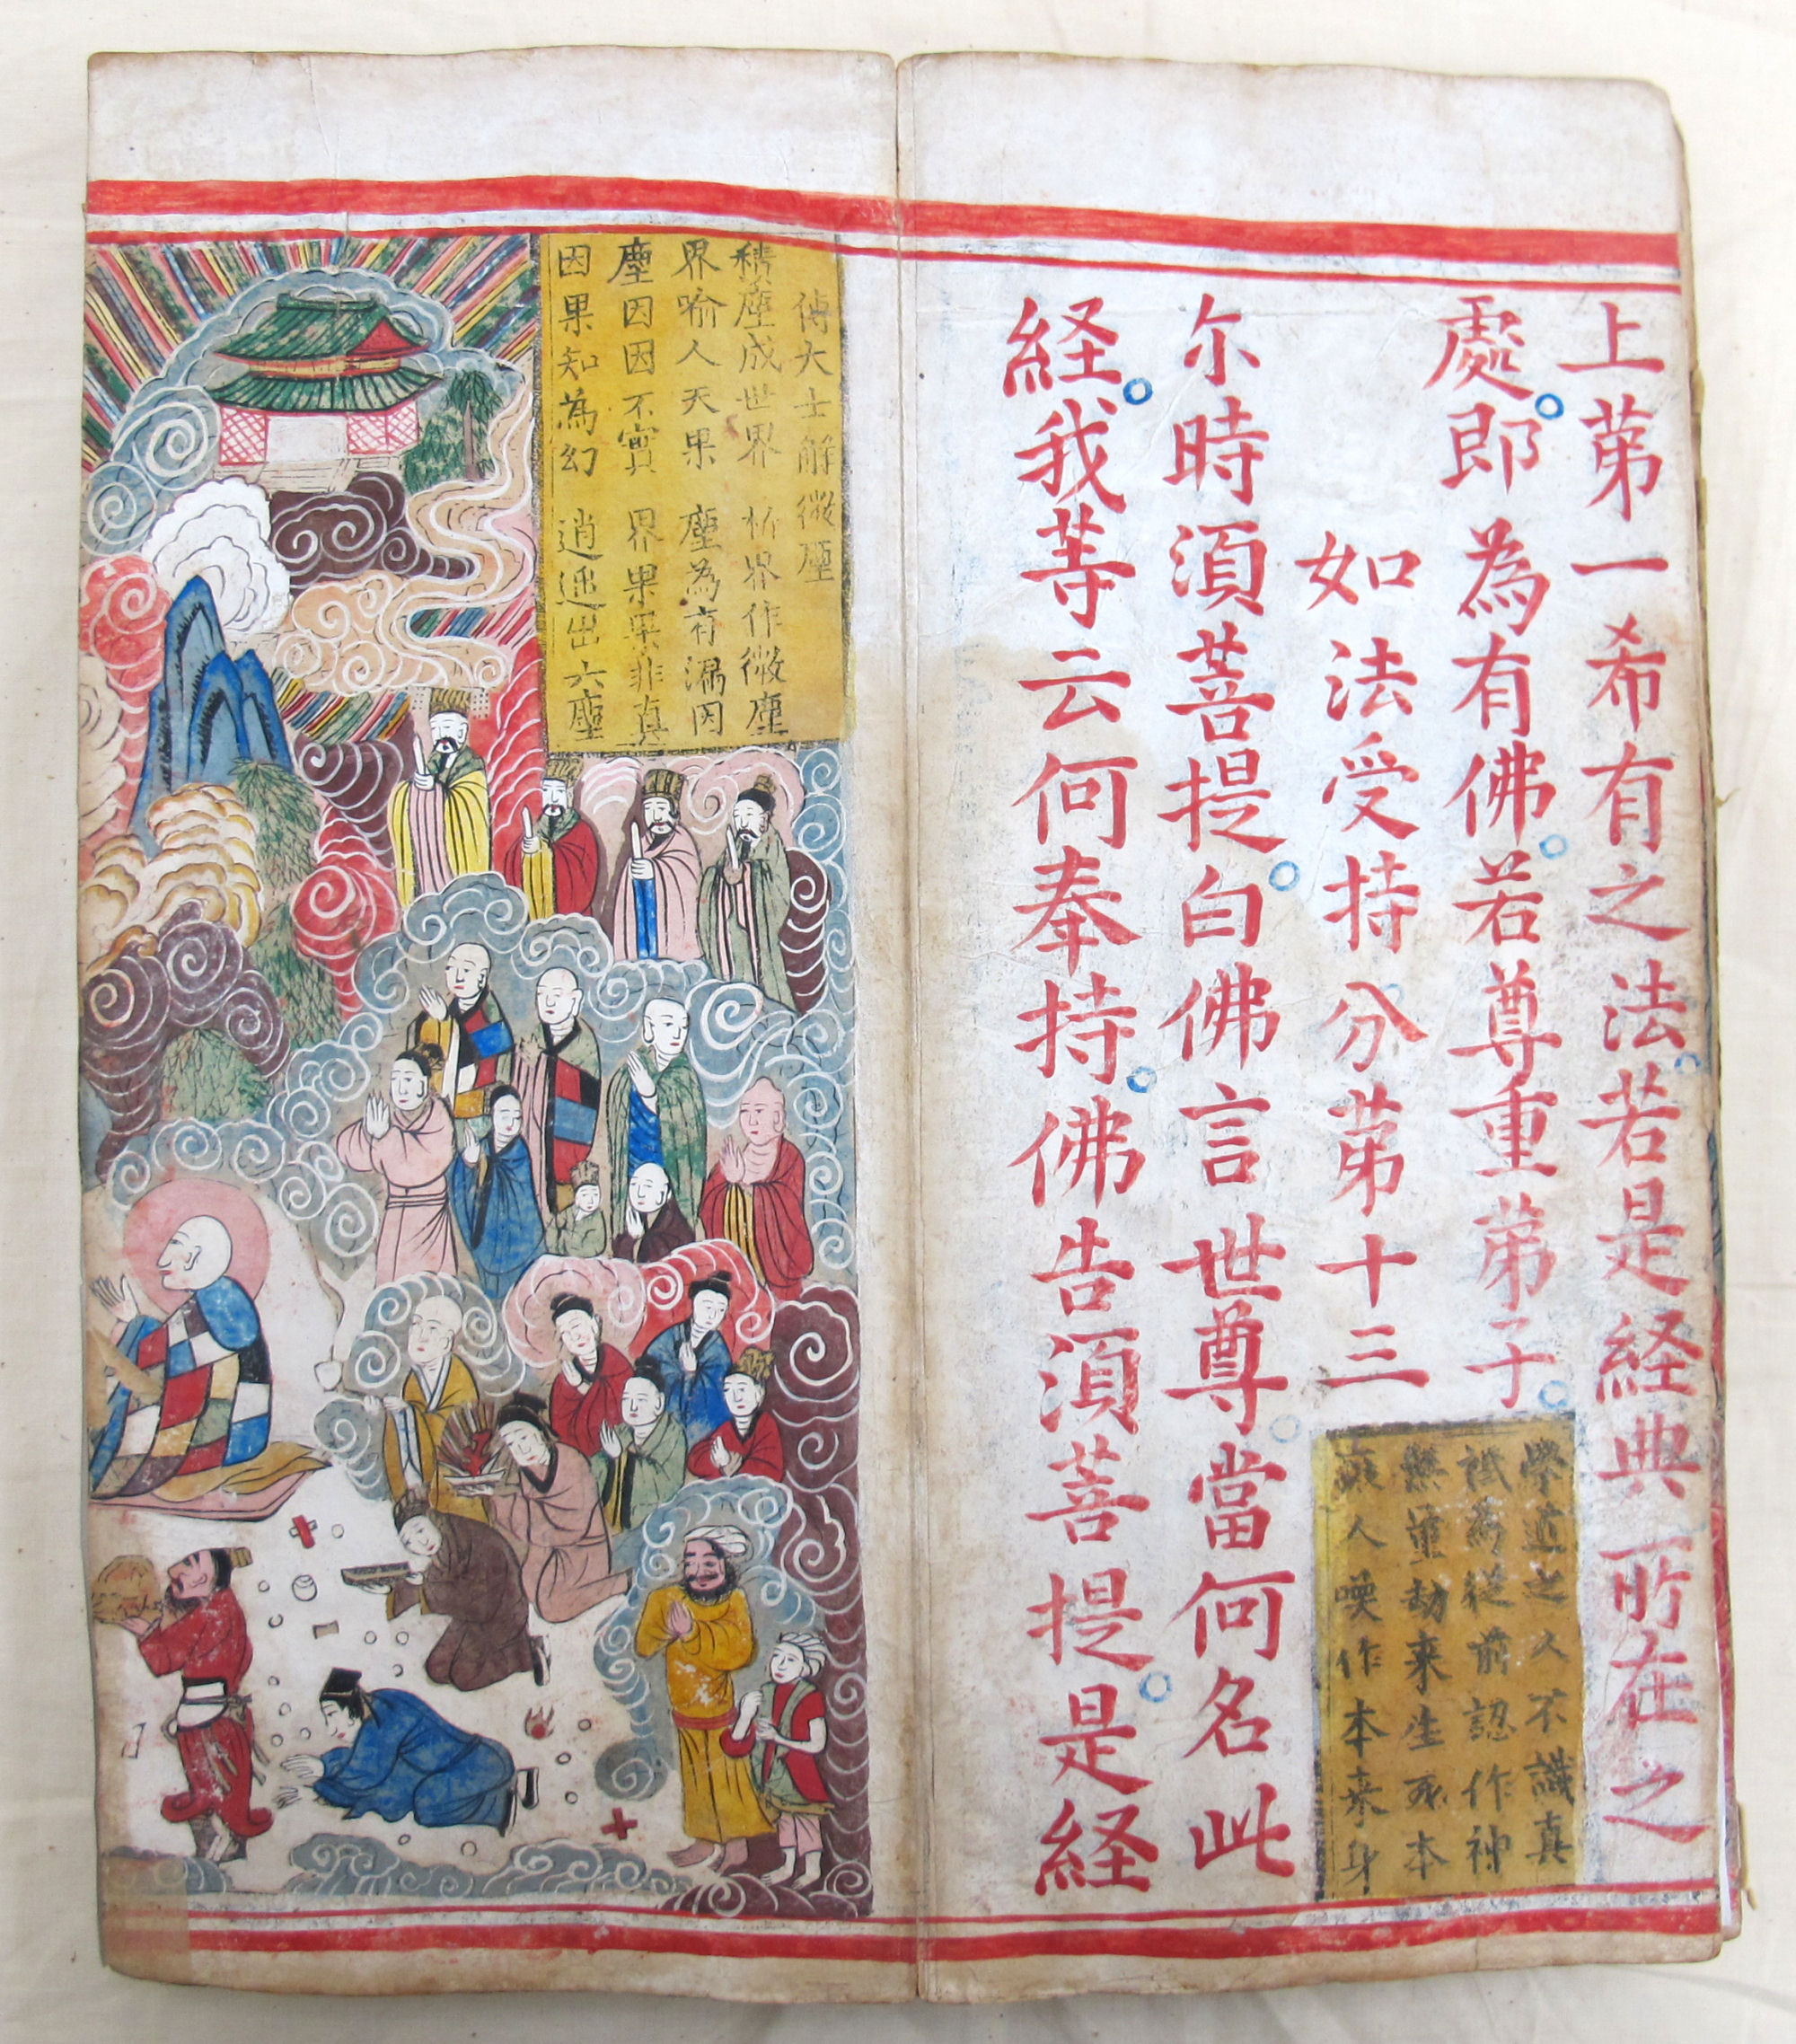 上苐一希有之法。若是経典所在之
處。即為有佛。若尊重苐子。
如法受持分苐十三
學道之人不識真
祗為從前認作神
無量劫来生死本
人喚作本来身
尓時湏菩提。白佛言世尊。當何名此
経。我等云何奉持。佛告湏菩提。是経
傅大士解微塵
積塵成世界 析界作微塵
界喻人天果 塵為有漏因
塵因因不實 界果果非真
因果知為幻 逍遥出六塵